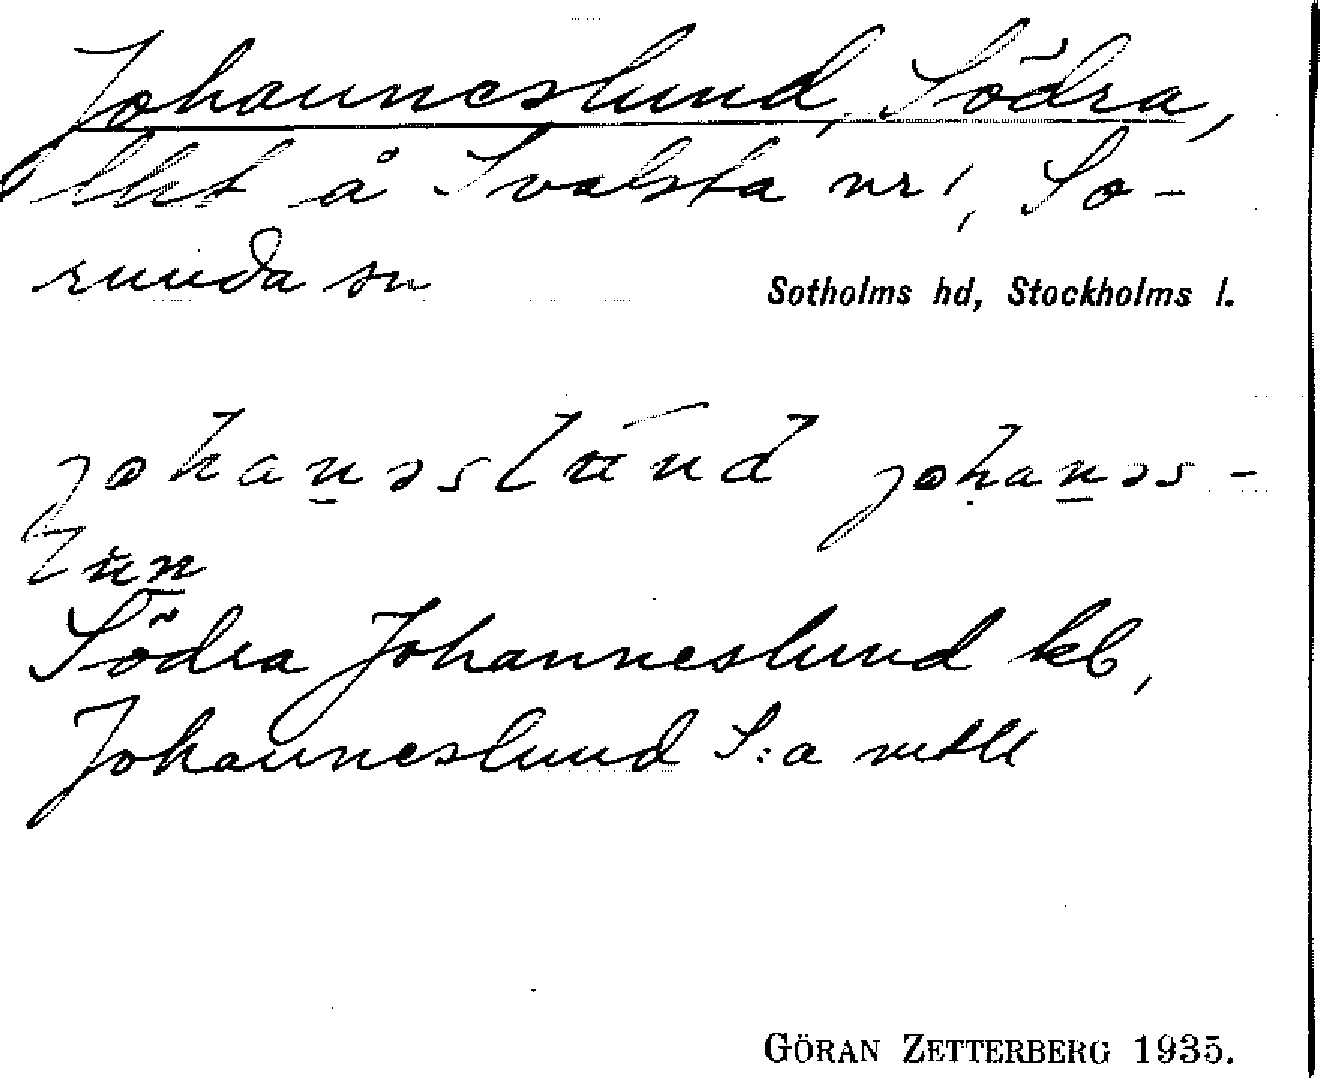 Johanneslund, Södra,
lht å Svalsta nr 1, So-
runda sn
Sotholms hd, Stockholms l.
johanəslund johanəs-
lun
Södra Johanneslund kb,
Johanneslund S:a mtll
GÖRAN ZETTERBERG 1935.